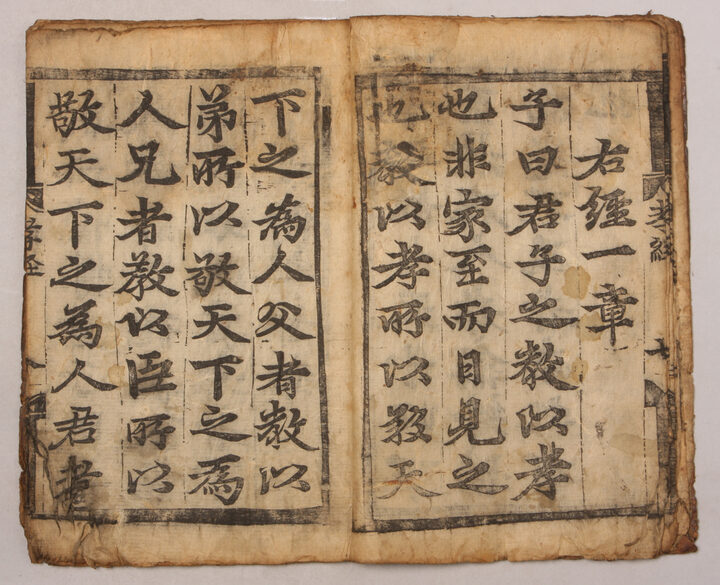 孝經 七
右經一章
子曰君子之教以孝
也非家至而目見之
也教以孝所以敬天
下之為人父者教以
弟所以敬天下之為
人兄者教以臣所以
敬天下之為人君者
孝經 八